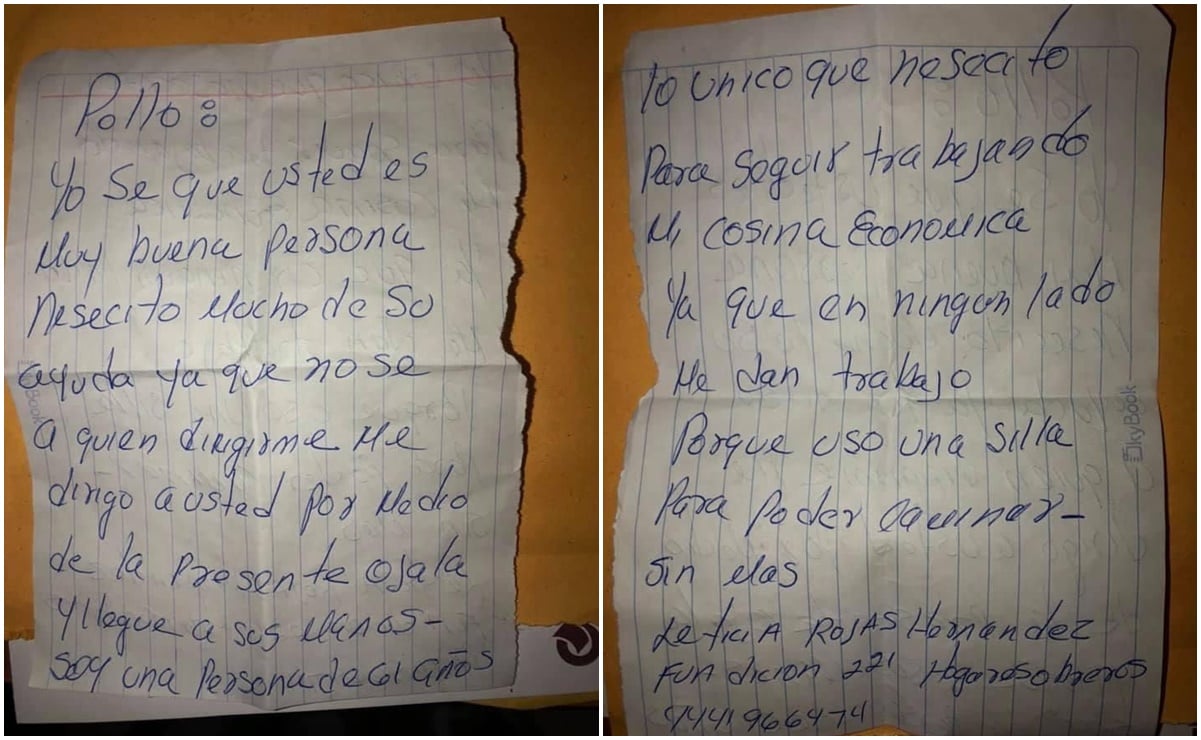 Pollo:
Yo Se que usted es
Muy buena persona
nesecito Mucho de Su
ayuda ya que no se
a quien dirigirme Me
dirigo a usted por Medio
de la presente ojala
y llegue a sus Manos-
Soy una Persona de 61 años
lo unico que nesecito
Para Seguir trabajando
Mi cosina Economica
Ya que en ningun lado
Me dan trabajo
Porque uso una silla
Para Poder caminar-
Sin Mas
Leticia Rojas Hernandez
Fundicion 221 Hogares obreros
4441966474
kyBook